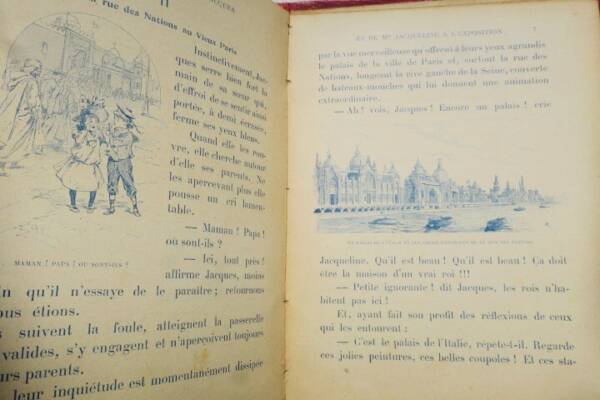 II
rue des Nations au Vieux Paris
Instinctivement, Jac-
ques serre bien fort la
main de sa sœur qui,
d'effroi de se sentir ainsi
portée, à demi écrasée,
ferme ses yeux bleus.
Quand elle les rou-
vre, elle cherche autour
d'elle ses parents. Ne
les apercevant plus elle
pousse un cri lamen-
table.
— Maman ! Papa !
où sont-ils ?
— Ici, tout près !
affirme Jacques, moins
MAMAN ! PAPA ! OU SONT-ILS ?
qu'il n'essaye de le paraître ; retournons
étions.
suivent la foule, atteignent la passerelle
valides, s'y engagent et n'aperçoivent toujours
parents.
leur inquiétude est momentanément dissipée
ET DE Mlle JACQUELINE A L'EXPOSITION 7
par la vue merveilleuse qu'offrent à leurs yeux agrandis
le palais de la ville de Paris et, surtout la rue des
Nations, longeant la rive gauche de la Seine, couverte
de bateaux-mouches qui lui donnent une animation
extraordinaire.
— Ah ! vois, Jacques ! Encore un palais ! crie
Jacqueline. Qu'il est beau ! Qu'il est beau ! Ça doit
être la maison d'un vrai roi !!!
— Petite ignorante ! dit Jacques, les rois n'ha-
bitent pas ici !
Et, ayant fait son profit des réflexions de ceux
qui les entourent :
— C'est le palais de l'Italie, répète-t-il. Regarde
ces jolies peintures, ces belles coupoles ! Et ces sta-